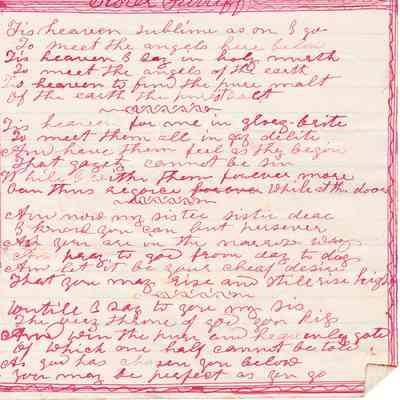 Tis heaven sublime as on I go
To meet the angels here below
Tis heaven I say in holy mirth
To meet the angels of the earth
Tis heaven to find the pure malt
Of the earth the purest salt
Tis heaven for me in glory brite
To meet them all in my delite
And have them feel as they begin
That cannot be sin
While with them forever more
Can thus rejoice forever While at the door
And now my sister sister dear
I know you can but persever
As you are on the narrow way
And pray to god from day to day
And let it be your cheaf desire
That you may rise and still rise higher
Untile I say to you my sis
The very throne of god
And win the pure and heavenly gate
Of which one half cannot be told
As god has chosen you below
You may be perfect as you go